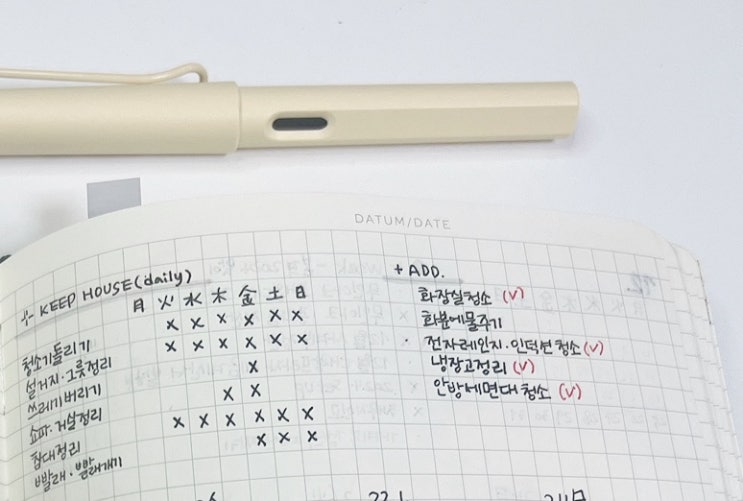 DATUM/DATE
⊹ KEEP HOUSE (daily)
月 火 水 木 金 土 日
청소기돌리기 x x x x x x
설거지·그릇정리 x x x x x x
쓰레기버리기 x
쇼파·거실정리 x x
침대정리 x x x x x x
빨래·빨래개기 x x x
+ ADD.
화장실청소 (V)
화분에물주기
전자레인지·인덕션청소 (V)
냉장고정리 (V)
안방세면대청소 (V)